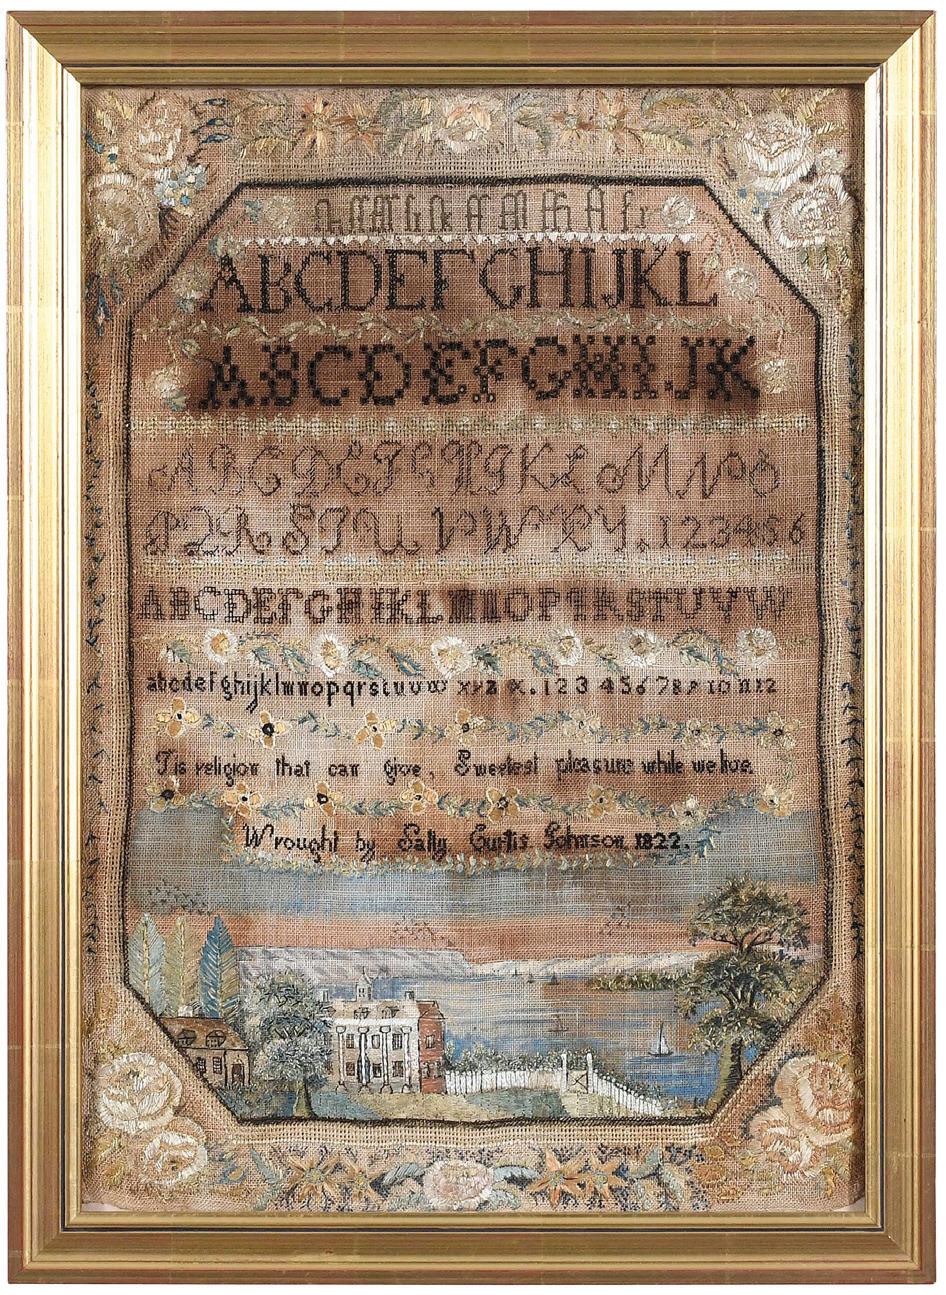 ABCDEFGHIJKL
ABCDEFGHIJK
ABCDEFGHIKLMNO
PQRSTUVWXY. 123456
ABCDEFGHIKLMNOPQRSTUVW
abcdefghijklmnopqrstuvw xyz &. 1 2 3 4 5 6 7 8 9 10 11 12
Tis religion that can give, Sweetest pleasure while we live.
Wrought by Sally Curtis Johnson 1822.